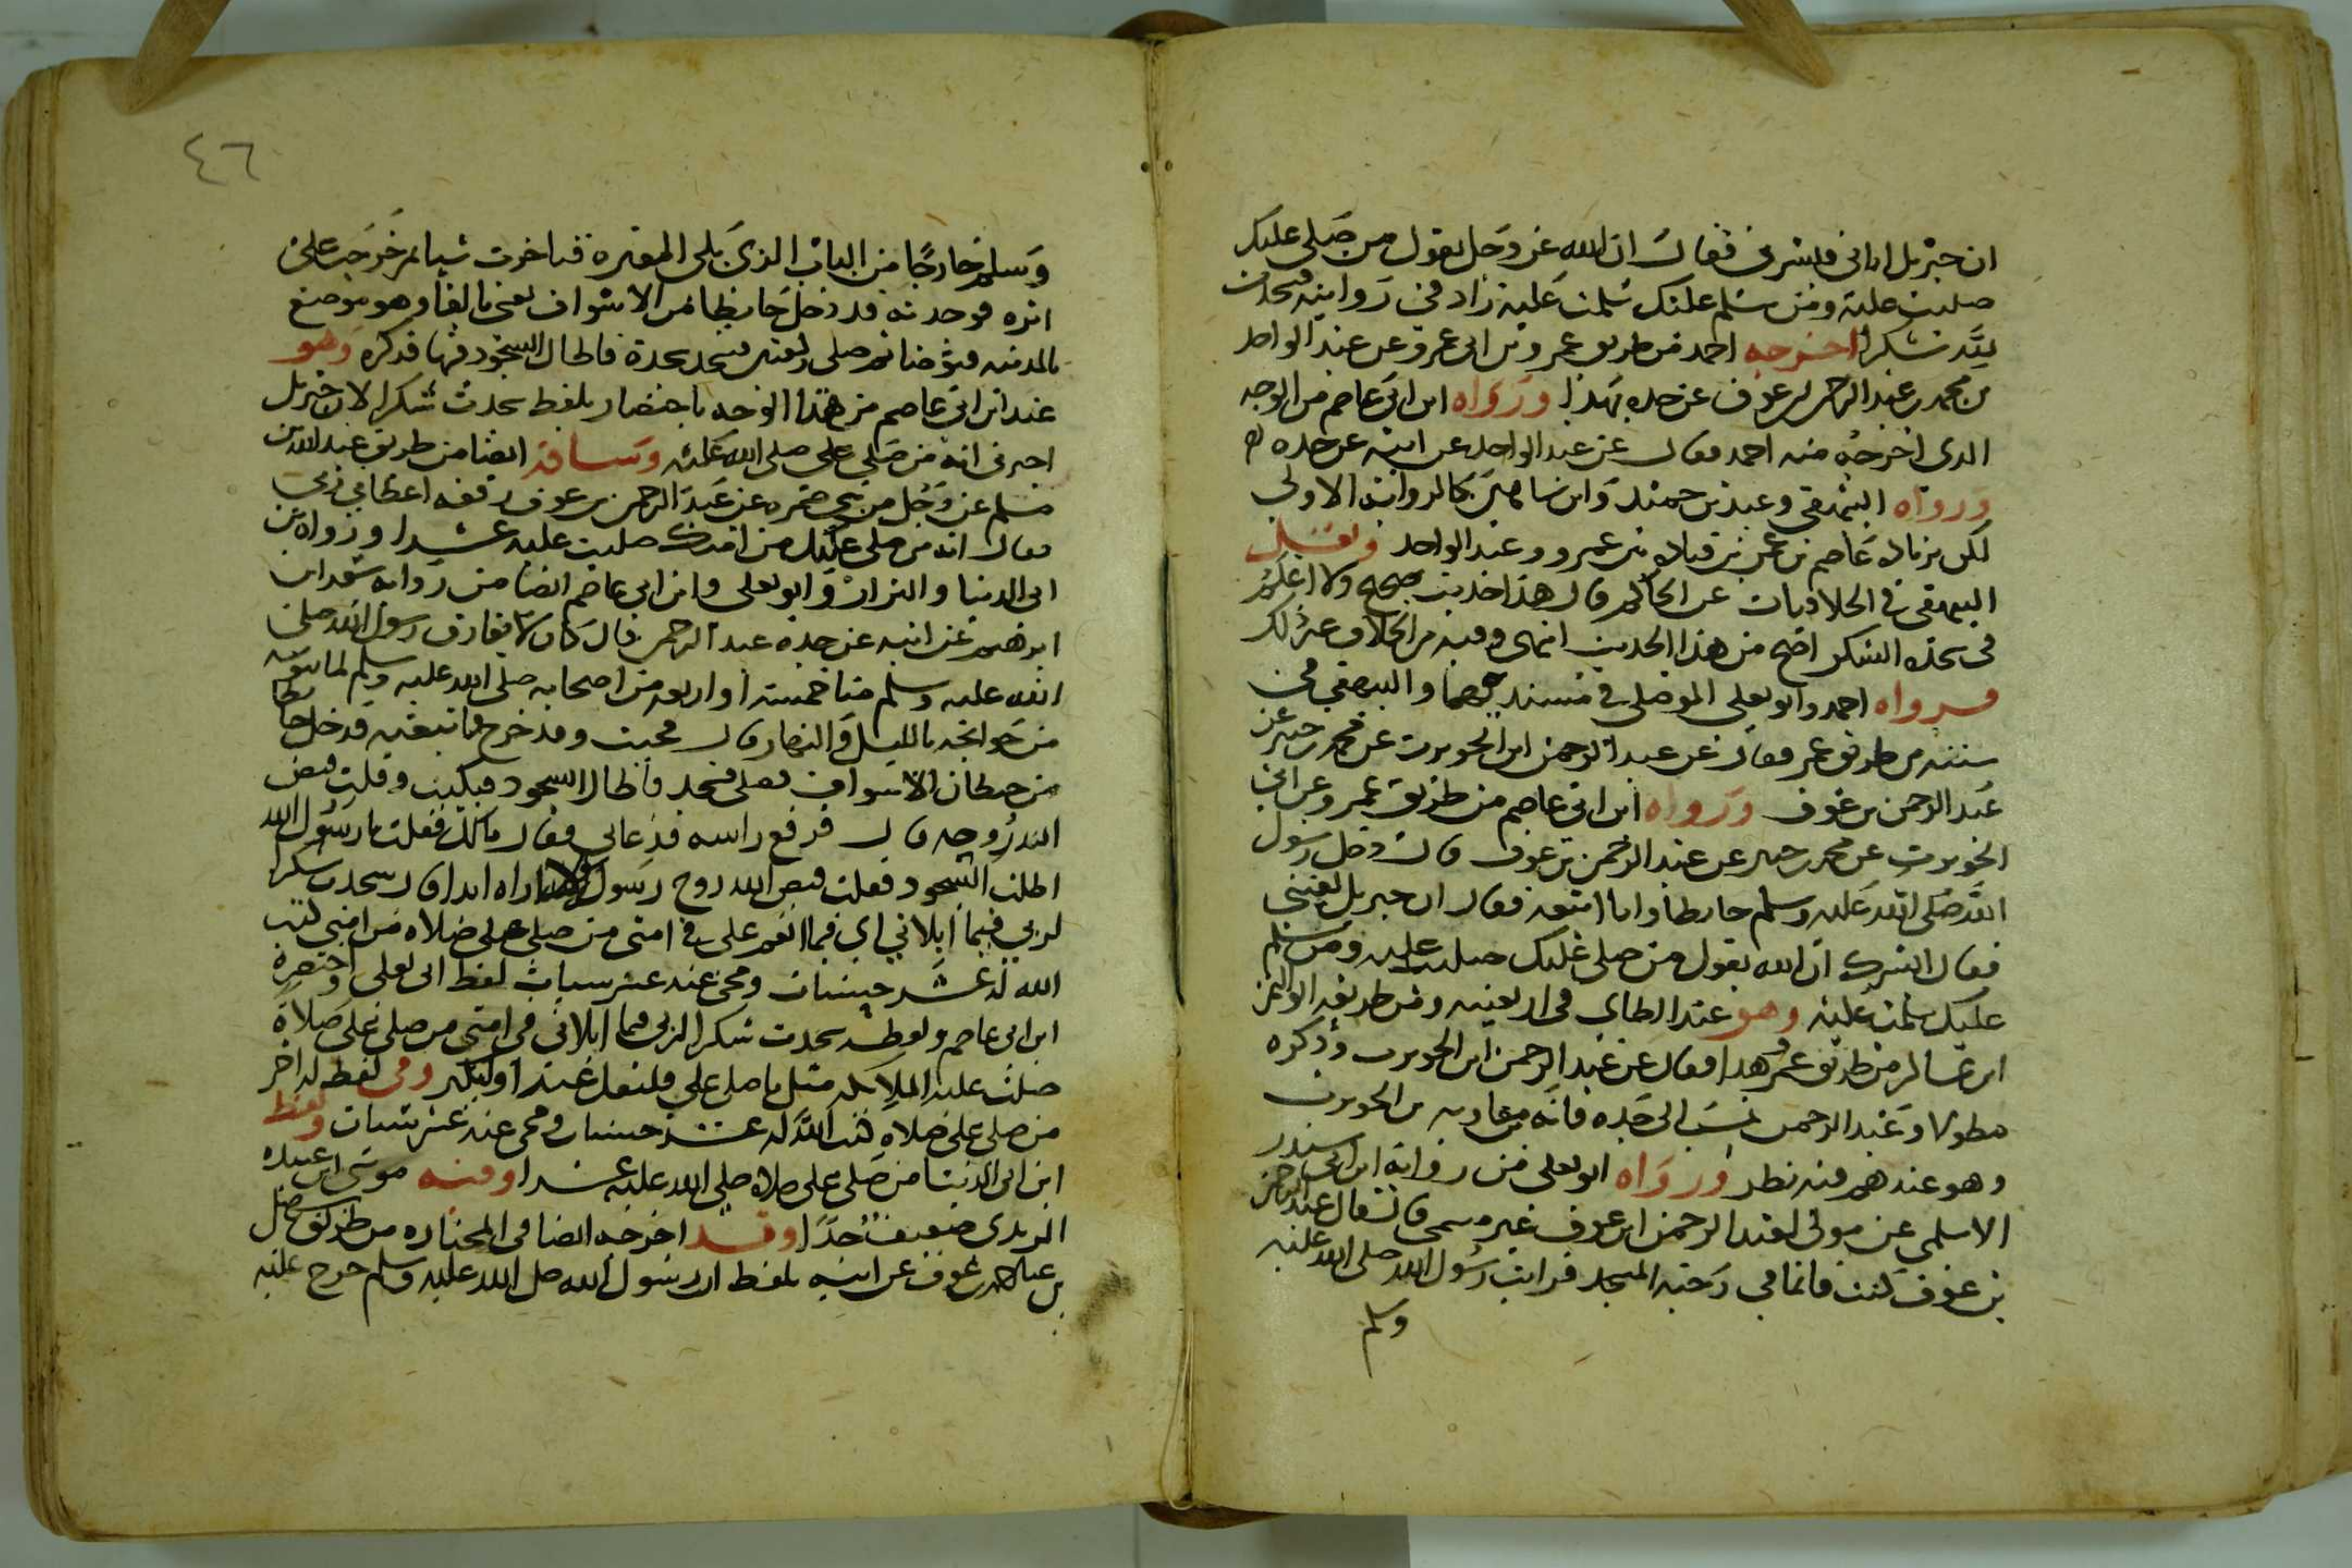 ان جبريل اتاني فبشرني فقال ان الله عز وجل يقول من صلى عليك
صليت عليه ومن سلم عليك سلمت عليه زاد في رواية فسجدت
لله شكرا اخرجه احمد من طريق عمرو بن ابي عمرو عن عبد الواحد
بن محمد بن عبد الرحمن بن عوف عن جده بهذا ورواه ابن ابي عاصم من الوجه
الذي اخرجه منه احمد فقال عن عبد الواحد عن ابيه عن جده
ورواه البيهقي وعبد بن حميد وابن شاهين كالرواية الاولى
لكن بزيادة عاصم بن عمر بن قتادة بين عمرو وعبد الواحد ونقل
البيهقي في الخلافيات عن الحاكم قال هذا حديث صحيح ولا اعلم
في سجدة الشكر اصح من هذا الحديث انتهى وفيه من الخلاف
ورواه احمد وابو يعلى الموصلي في مسنديهما والبيهقي في
سننه من طريق عمرو فقال عن عبد الرحمن ابن الحويرث عن محمد بن جبير عن
عبد الرحمن بن عوف ورواه ابن ابي عاصم من طريق عمرو عن ابي
الحويرث عن محمد بن جبير عن عبد الرحمن بن عوف قال دخل رسول
الله صلى الله عليه وسلم حايطا وانا اتبعه فقال ان جبريل لقيني
فقال ابشرك ان الله يقول من صلى عليك صليت عليه ومن سلم
عليك سلمت عليه وهو عند الطاي في اربعينه ومن طريقه ابو اليمن
ابن عساكر من طريق عمرو هذا فقال عن عبد الرحمن ابن الحويرث وذكره
مطولا وعبد الرحمن نسب الى جده فانه معاوية بن الحويرث
وهو عندهم فيه نظر ورواه ابو يعلى من رواية ابن ابي سندر
الاسلمي عن مولى لعبد الرحمن ابن عوف غير مسمى قال قال عبد الرحمن
بن عوف كنت قائما في رحبة المسجد فرايت رسول الله صلى الله عليه
وسلم
٤٦
وسلم خارجا من الباب الذي يلي المقبرة فتاخرت شيا ثم خرجت على
اثره فوجدته قد دخل حايطا من الاسواف يعني بالفا وهو موضع
بالمدينه فتوضا ثم صلى ركعتين فسجد سجدة فاطال السجود فيها فذكره وهو
عند ابن ابي عاصم من هذا الوجه باختصار بلفظ سجدت شكرا لان جبريل
اخبرني انه من صلى علي صلى الله عليه وساقه ايضا من طريق عبد الله بن
مسلم عن رجل من بني ضمره عن عبد الرحمن بن عوف رفعه اعطاني ربي
فقال انه من صلى عليك من امتك صليت عليه عشرا ورواه بن
ابي الدنيا والبزار وابو يعلى وابن ابي عاصم ايضا من رواية سعد ابن
ابرهيم عن ابيه عن جده عبد الرحمن قال كان لا يفارق رسول الله صلى
الله عليه وسلم منا خمسة او اربعة من اصحابه صلى الله عليه وسلم لما ينوبه
من حوايجه بالليل والنهار قال فجيت وقد خرج فاتبعته فدخل حايطا
من حيطان الاسواف فصلى فسجد فاطال السجود فبكيت وقلت قبض
الله روحه قال فرفع راسه فدعاني فقال مالك فقلت يا رسول الله
اطلت السجود فقلت قبض الله روح رسوله لا اراه ابدا قال سجدت شكرا
لربي فيما ابلاني اي فيما انعم علي في امتي من صلى علي صلاة من امتي كتب
الله له عشر حسنات ومحى عنه عشر سيات لفظ ابي يعلى واختصره
ابن ابي عاصم ولفظه سجدت شكرا لربي فيما ابلاني في امتي من صلى علي صلاة
صلت عليه الملايكة مثل ما صلى علي فليقل عبد او ليكثر وفي لفظ له اخر
من صلى علي صلاة كتب الله له عشر حسنات ومحى عنه عشر سيات ولفظ
ابن ابي الدنيا من صلى علي صلاة صلى الله عليه عشرا وفيه موسى ابن عبيدة
الربذي ضعيف جدا وقد اخرجه ايضا في المختاره من طريق سهيل
بن عبد الرحمن بن عوف عن ابيه بلفظ ان رسول الله صلى الله عليه وسلم خرج عليه